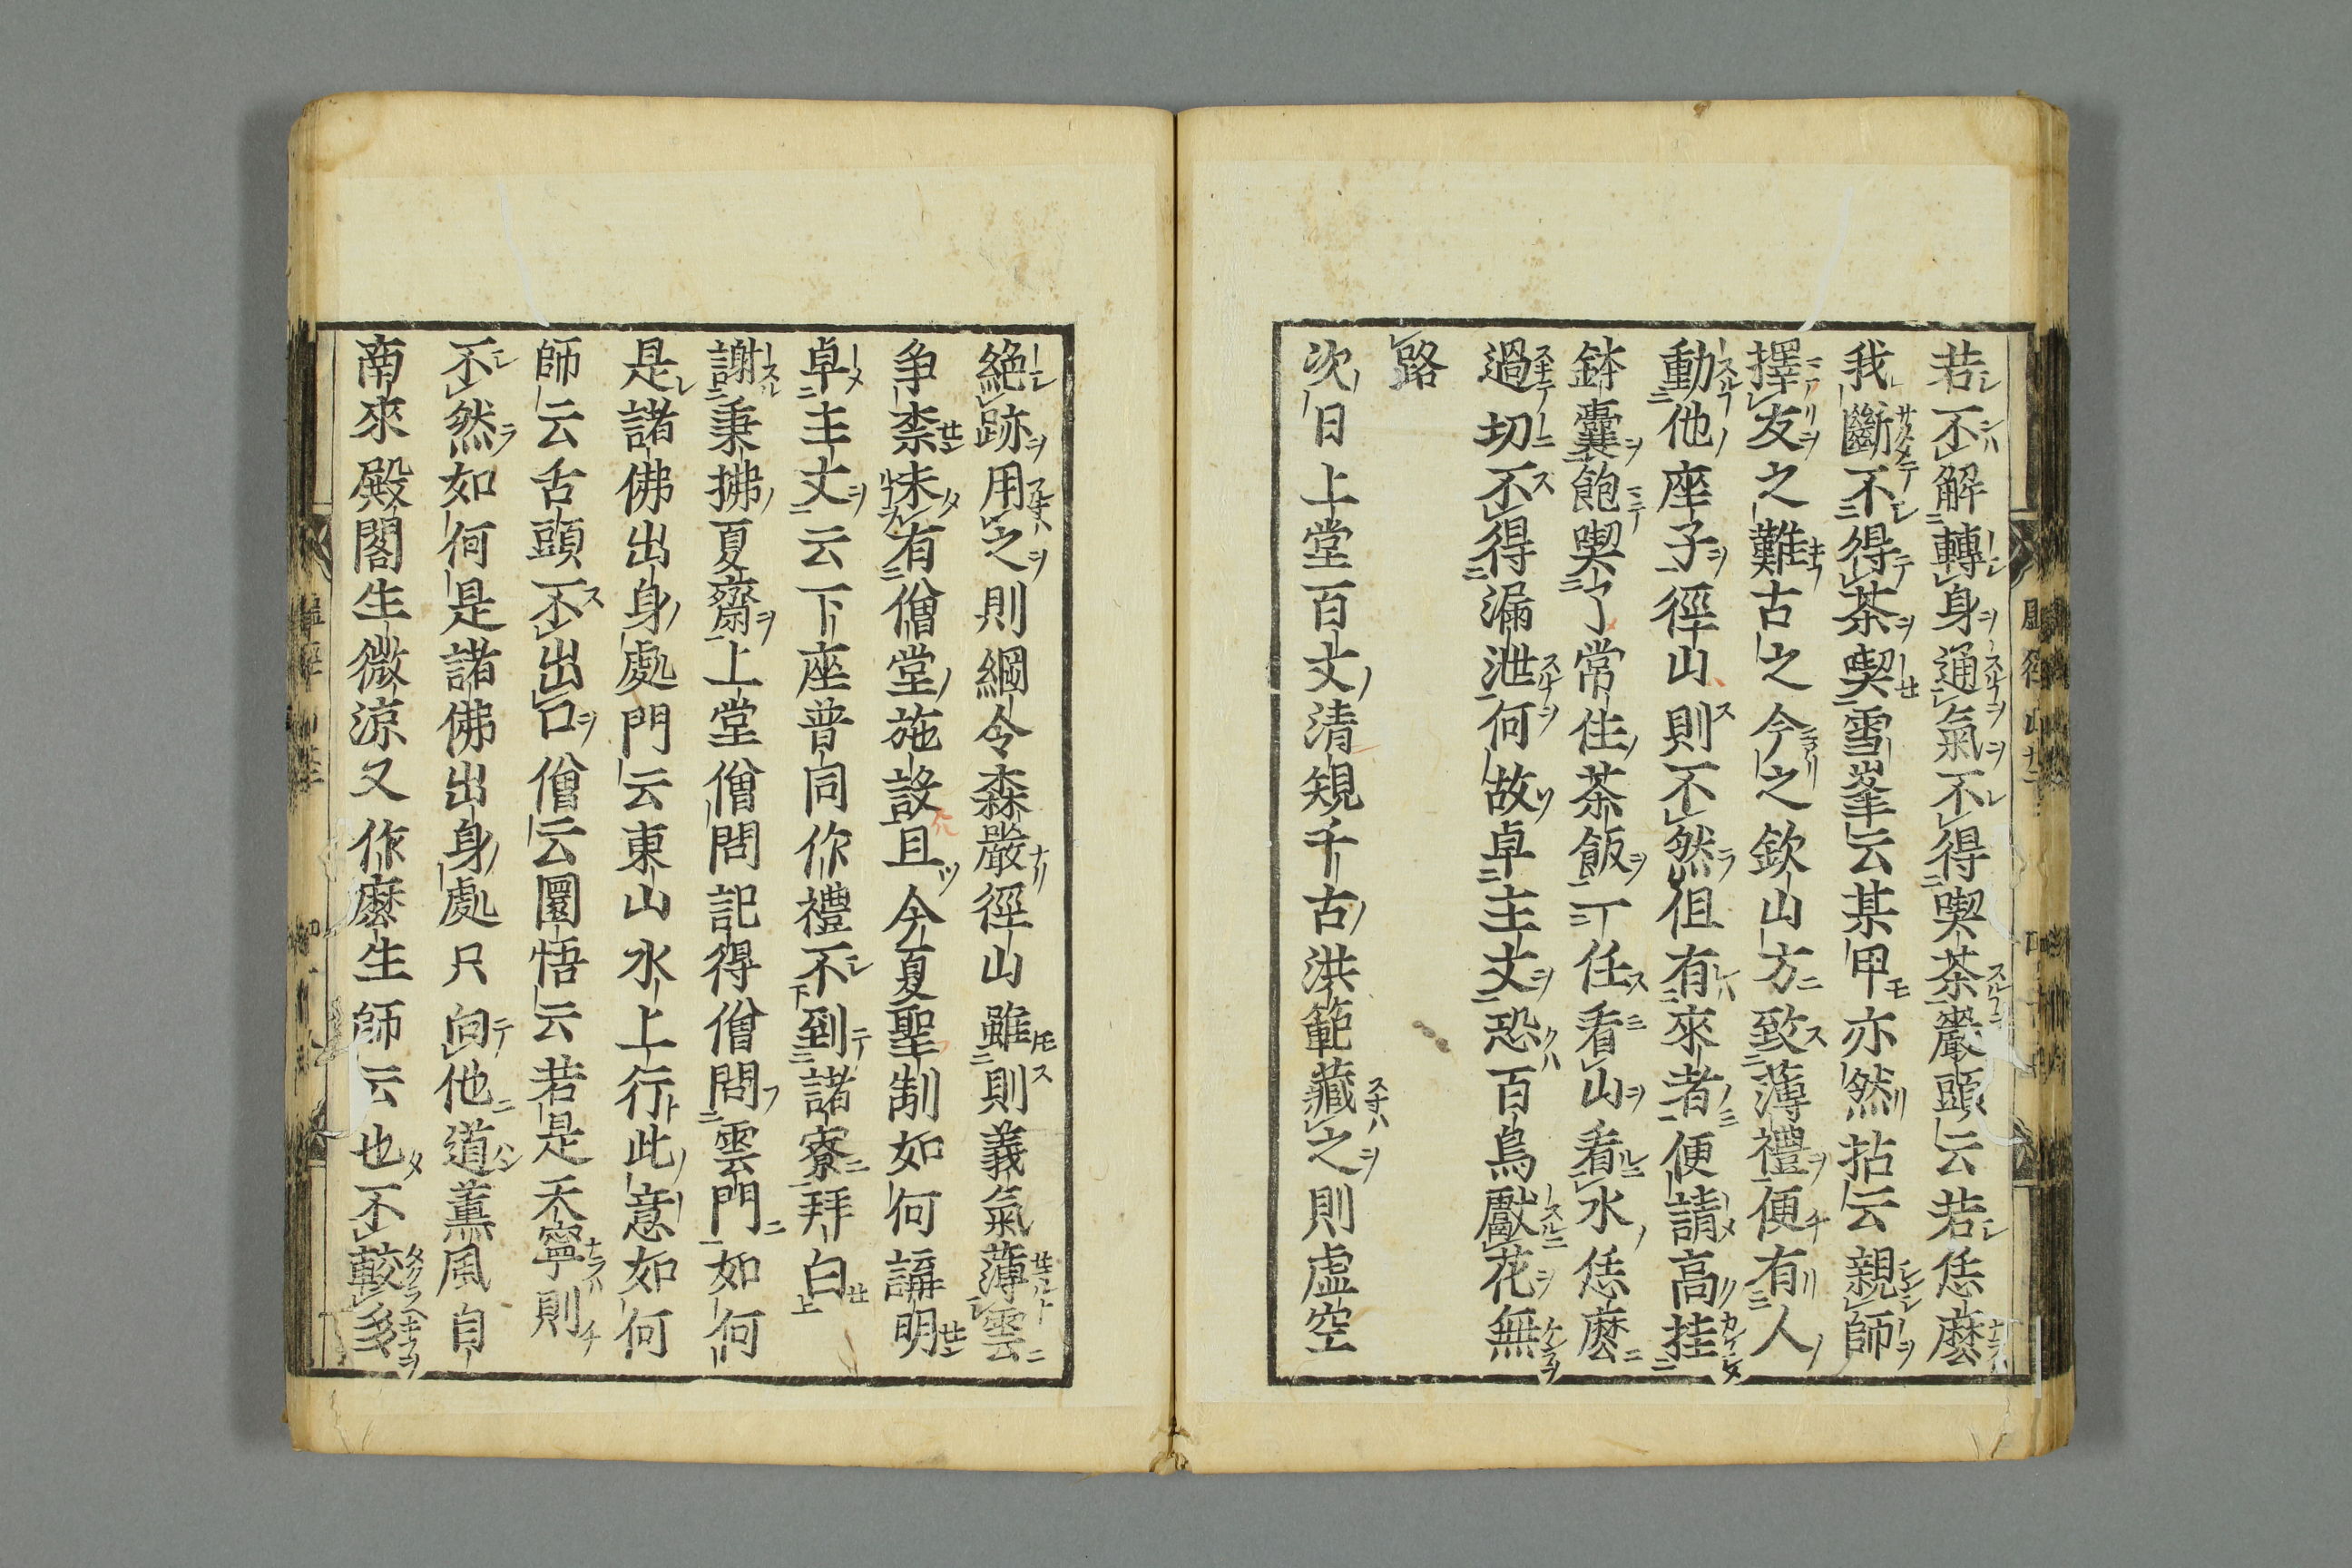 若不解轉身通氣不得喫茶巖頭云若恁麽
我斷不得茶喫雪峯云某甲亦然拈云親師
擇友之難古之今之欽山方致薄禮便有人
動他座子徑山則不然但有來者便請高挂
鉢囊飽喫了常住茶飯一任看山看水恁麽
過切不得漏泄何故卓主丈恐百鳥獻花無
路
次日上堂百丈清規千古洪範藏之則虛空
絶跡用之則綱令森嚴徑山雖則義氣薄雲
争柰未有僧堂施設且今夏聖制如何講明
卓主丈云下座普同作禮不到諸寮拜白
謝秉拂夏齋上堂僧問記得僧問雲門如何
是諸佛出身處門云東山水上行此意如何
師云舌頭不出口僧云圜悟云若是天寧則
不然如何是諸佛出身處只向他道薫風自
南來殿閣生微涼又作麽生師云也不較多